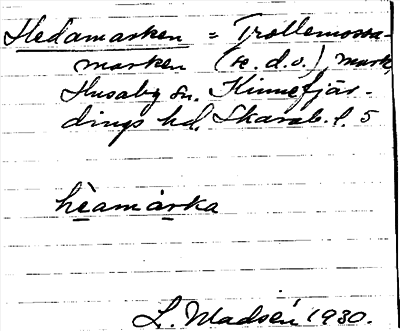 Hedamarken = Trollemossa-
marken (se. d. o.) mark,
Husaby sn. Kinnefjär-
dings hd. Skarab. l. 5
hèamàrka
L. Madsén 1930.